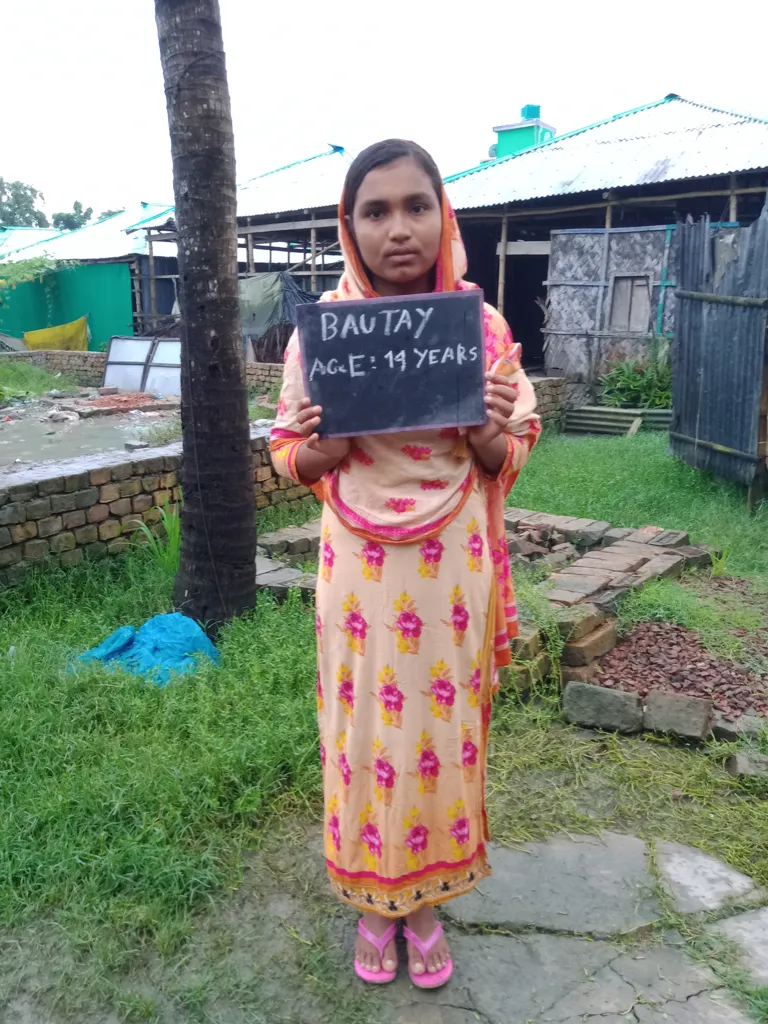 BAUTAY
AGE: 14 YEARS